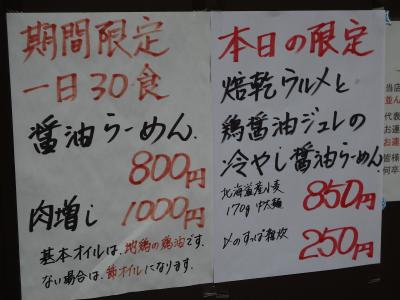 期間限定
一日30食
醤油らーめん.
800円
肉増し 1000円
基本オイルは、地鶏の鶏油です。
ない場合は、節オイルになります。
本日の限定
焙乾ウルメと
鶏醤油ジュレの
冷やし醤油らーめん.
北海道産小麦
170g 中太麺
850円
〆のすっぱ雑炊
250円
当店
並ん
代表
お運
お運
皆様
何卒